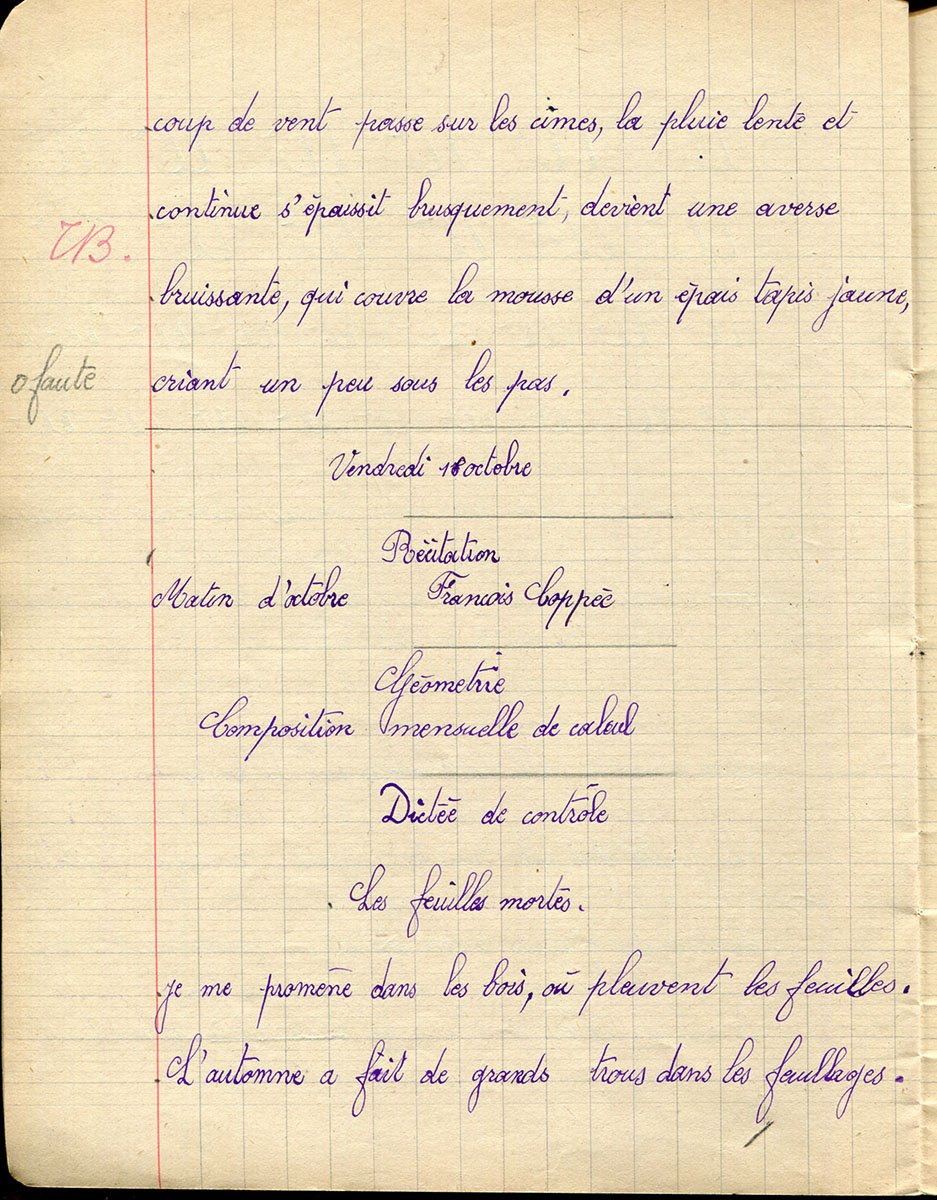 coup de vent passe sur les cimes, la pluie lente et
continue s'épaissit brusquement, devient une averse
TB.
bruissante, qui couvre la mousse d'un épais tapis jaune,
0 faute
criant un peu sous les pas.
Vendredi 18 octobre
Récitation
Matin d'octobre François Coppée
Géométrie
Composition mensuelle de calcul
Dictée de contrôle
Les feuilles mortes.
je me promène dans les bois, où pleuvent les feuilles.
L'automne a fait de grands trous dans les feuillages.